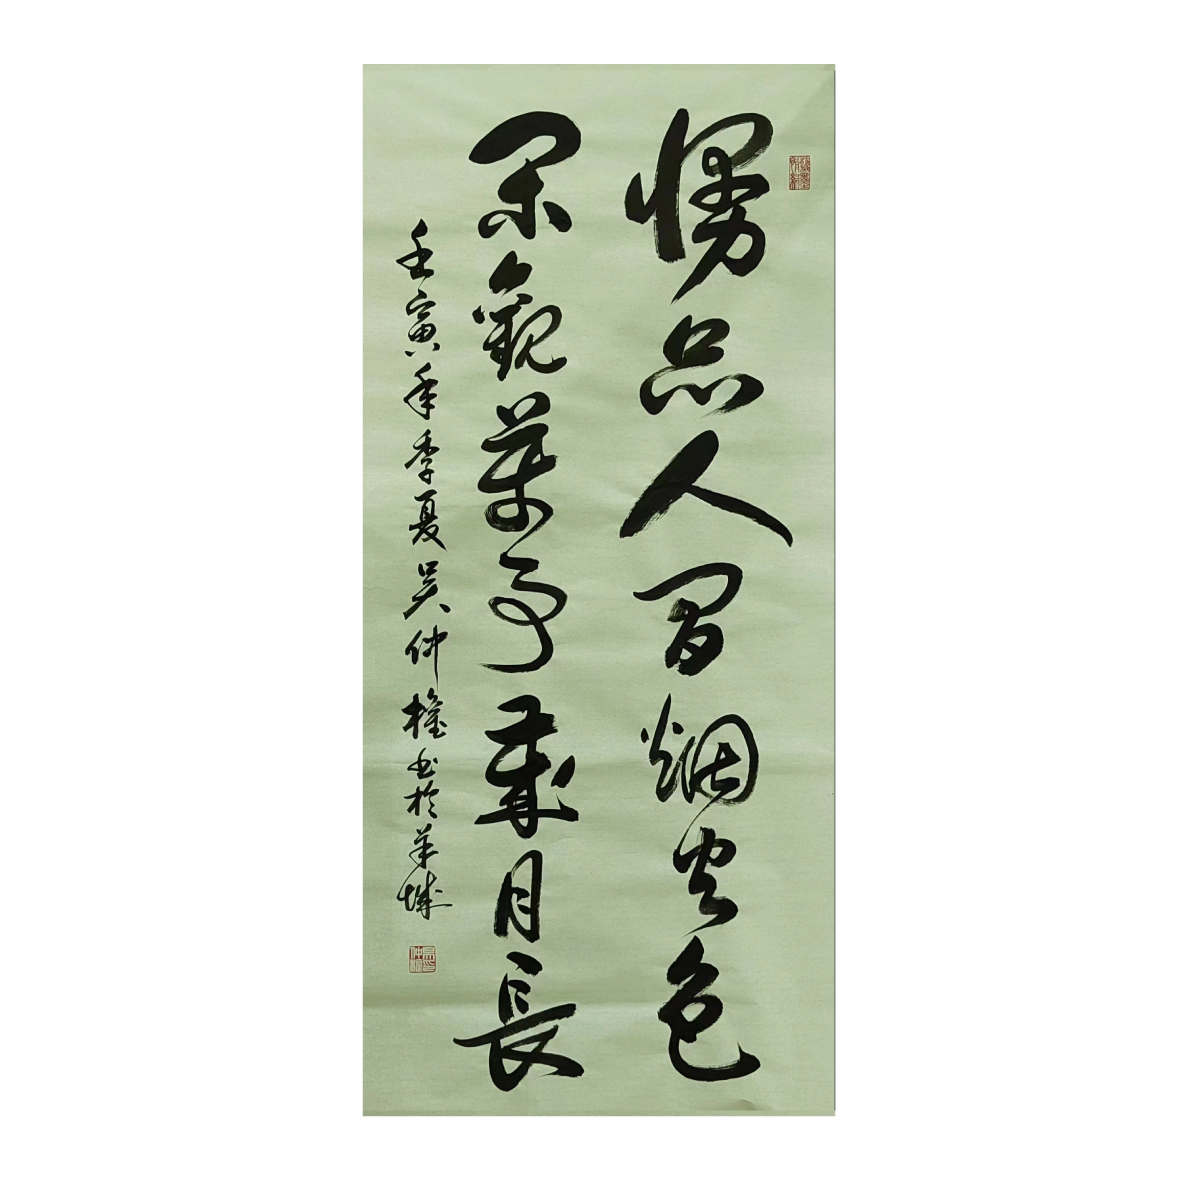 慢品人间烟火色
闲觀萬事歲月長
壬寅年季夏吴仲權书於羊城